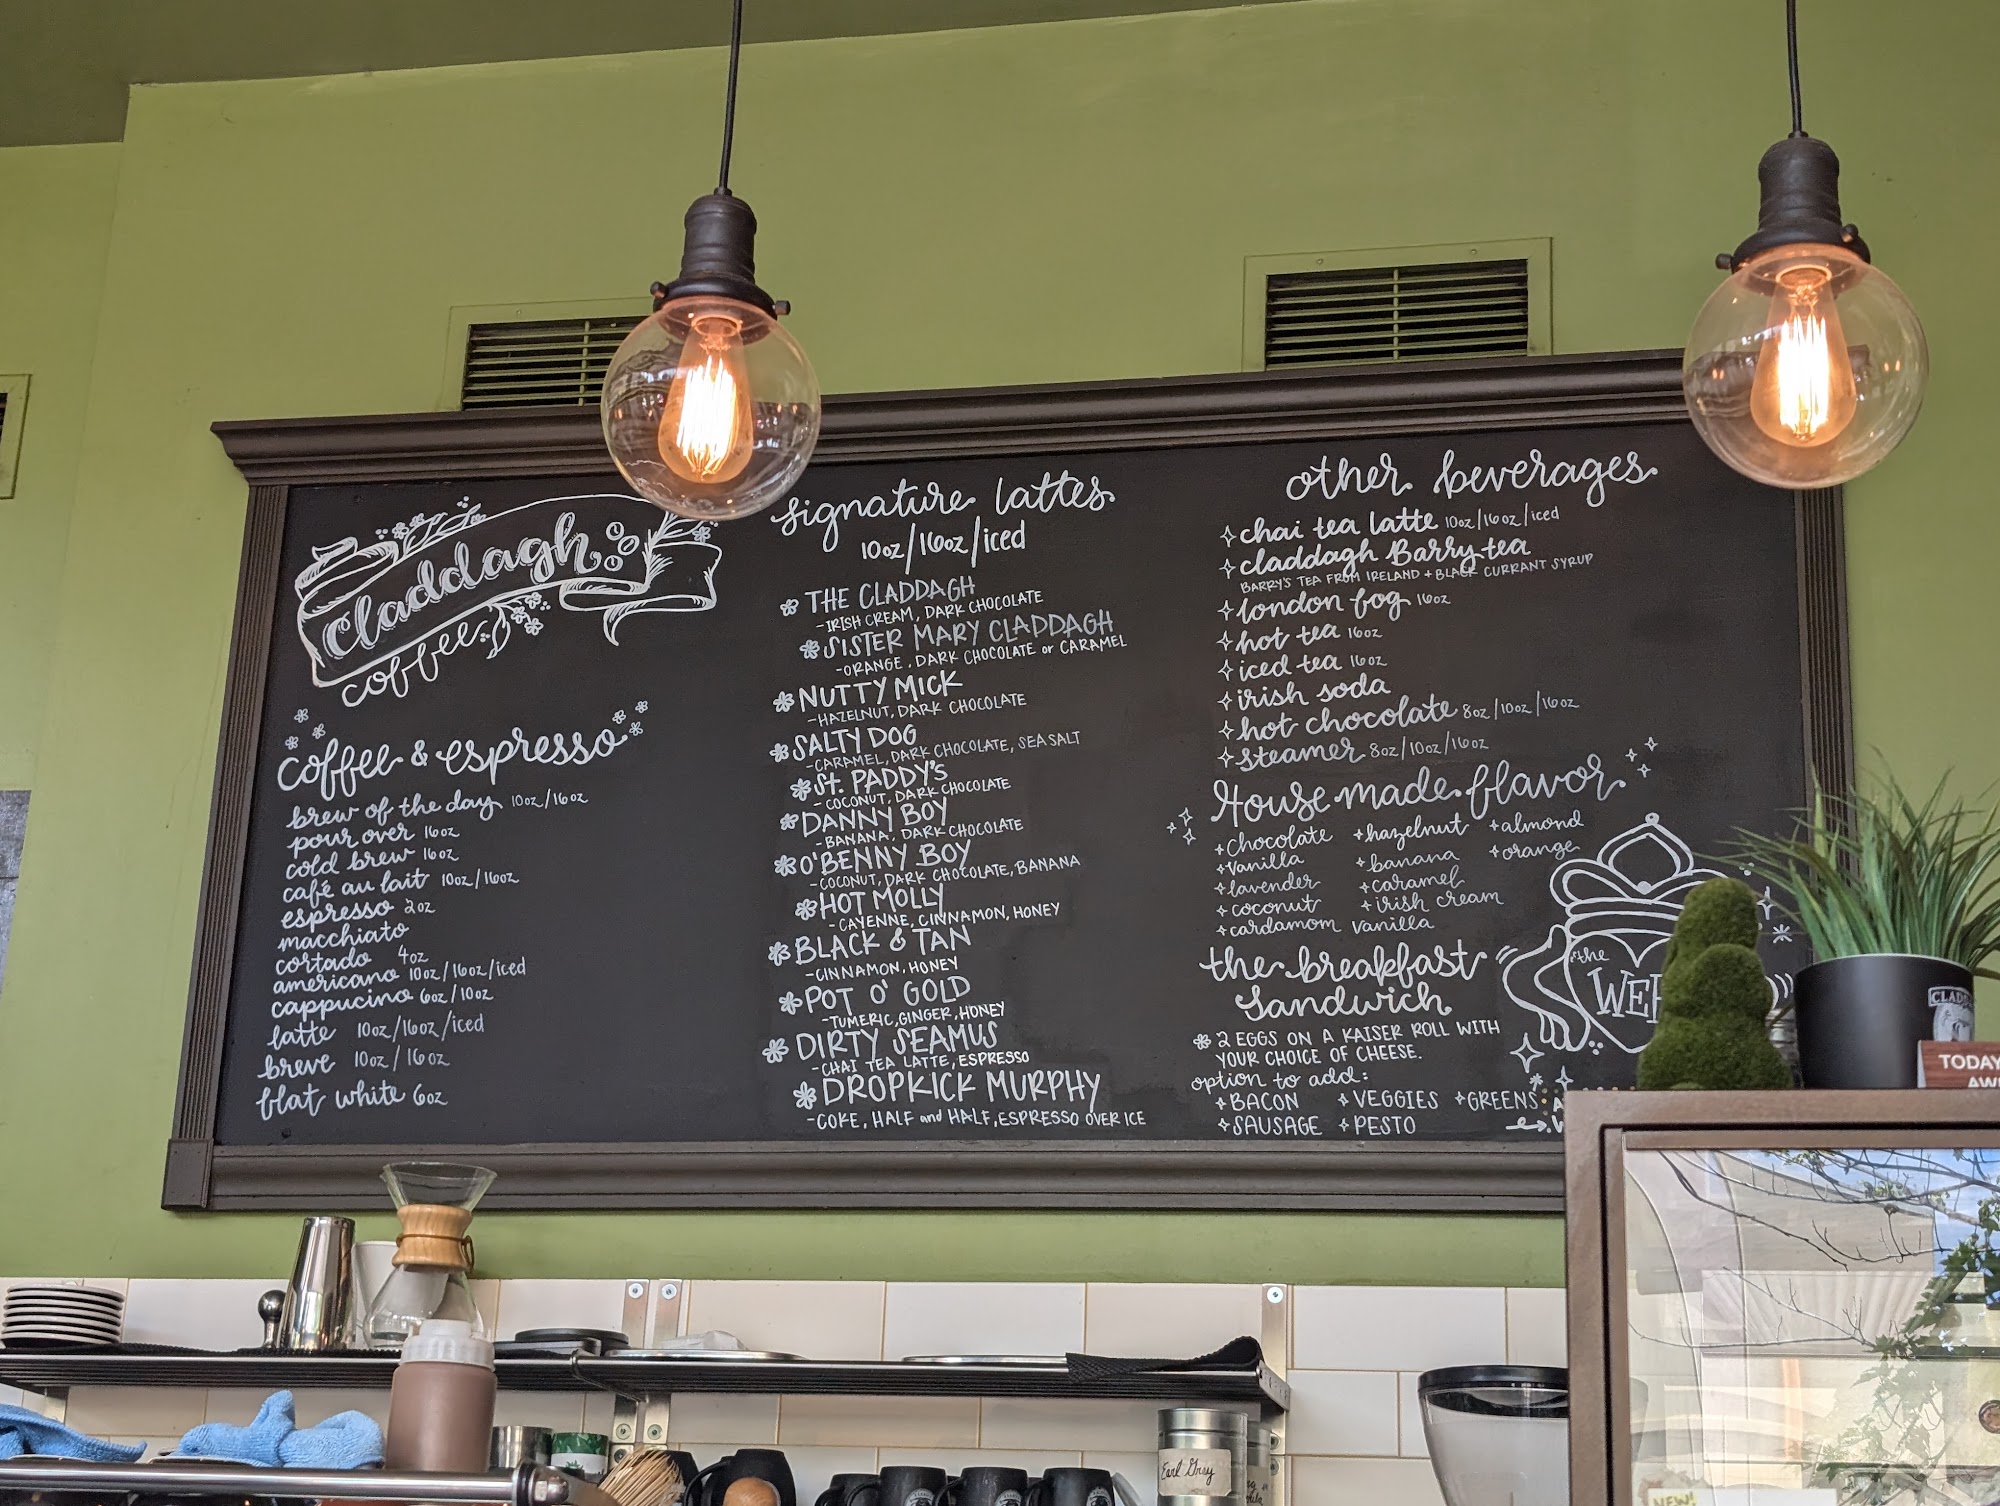 claddagh
coffee
coffee & espresso
brew of the day 10oz/16oz
pour over 16oz
cold brew 16oz
café au lait 10oz/16oz
espresso 2oz
macchiato
cortado 4oz
americano 10oz/16oz/iced
cappucino 6oz/10oz
latte 10oz/16oz/iced
breve 10oz/16oz
flat white 6oz
signature lattes
10oz/16oz/iced
THE CLADDAGH
-IRISH CREAM, DARK CHOCOLATE
SISTER MARY CLADDAGH
-ORANGE, DARK CHOCOLATE or CARAMEL
NUTTY MICK
-HAZELNUT, DARK CHOCOLATE
SALTY DOG
-CARAMEL, DARK CHOCOLATE, SEA SALT
St. PADDY'S
-COCONUT, DARK CHOCOLATE
DANNY BOY
-BANANA, DARK CHOCOLATE
O'BENNY BOY
-COCONUT, DARK CHOCOLATE, BANANA
HOT MOLLY
-CAYENNE, CINNAMON, HONEY
BLACK & TAN
-CINNAMON, HONEY
POT O' GOLD
-TUMERIC, GINGER, HONEY
DIRTY SEAMUS
-CHAI TEA LATTE, ESPRESSO
DROPKICK MURPHY
-COKE, HALF and HALF, ESPRESSO OVER ICE
other beverages
chai tea latte 10oz/16oz/iced
claddagh Barry tea
BARRY'S TEA FROM IRELAND + BLACK CURRANT SYRUP
london fog 16oz
hot tea 16oz
iced tea 16oz
irish soda
hot chocolate 8oz/10oz/16oz
steamer 8oz/10oz/16oz
House made flavor
chocolate hazelnut almond
vanilla banana orange
lavender caramel
coconut irish cream
cardamom vanilla
the breakfast
sandwich
2 EGGS ON A KAISER ROLL WITH
YOUR CHOICE OF CHEESE.
option to add:
BACON VEGGIES GREENS
SAUSAGE PESTO
the
TODAY
Earl Grey
NEW!